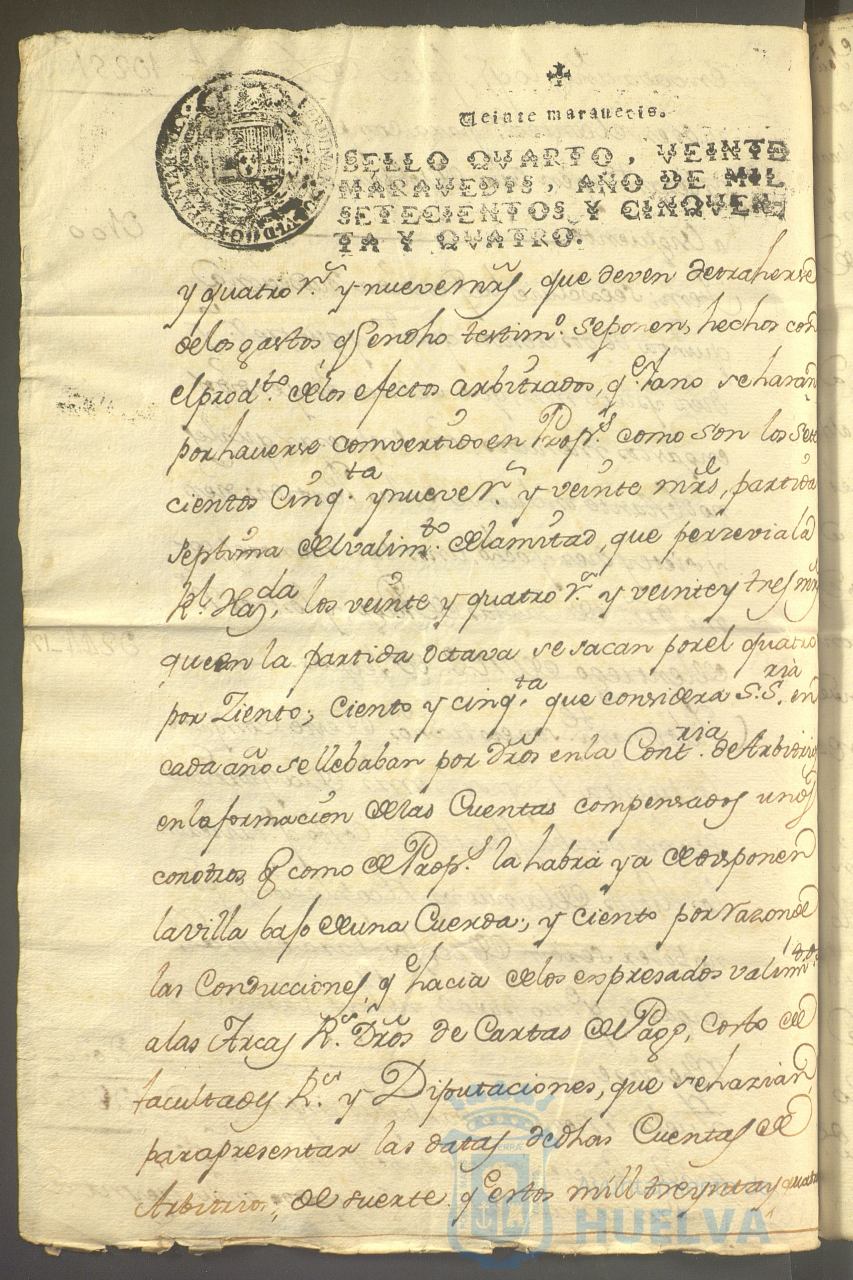 Veinte maravedis.
SELLO QVARTO, VEINTE
MARAVEDIS, AÑO DE MIL
SETECIENTOS Y CINQVEN
TA Y QUATRO.
y quatro r.ˢ y nueve mrs̃, que deven detraherse
de los gastos q̃ en dho testim.º se ponen, hechos con
el prod.ᵗᵒ de los efectos arbitrados, q.ᵉ ya no se haran
por haverse comvertido en Prop.ˢ como son los sete
cientos Cinq.ᵗᵃ y nueve r.ˢ y veinte mrs̃, partida
septima del valim.ᵗᵒ de la mitad, que perzevia la
R.ˡ Haz.ᵈᵃ, los veinte y quatro r.ˢ y veinte y tres mrs̃
que en la partida octava se sacan por el quatro
por Ziento; Ciento y cinq.ᵗᵃ que considera S.S.ʳⁱᵃ en
cada año se llebaban por dr̃os en la Cont.ʳⁱᵃ de Arbitrios
en la formacion de las Cuentas compensados unos
con otros q como de Prop.ˢ la habrá ya de disponer
la villa bajo de una Cuerda; y ciento por razon de
las Conducciones, q.ᵉ hacia de los expresados valim.ᵗᵒˢ
a las Arcas R.ˢ Dr̃os de Cartas de Pago, costo de
facultades R.ˢ y Diputaciones, que se hazian
para presentar las datas de dhas Cuentas de
Arbitrio; de suerte q.ᵉ estos mill treynta y quatro
Ayuntamiento de
HUELVA